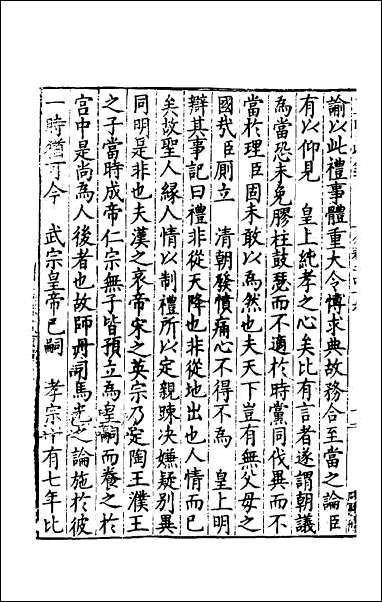 諭以此禮事體重大令博求典故務合至當之論臣
有以仰見 皇上純孝之心矣比有言者遂謂朝議
為當恐未免膠柱鼓瑟而不適於時黨同伐異而不
當於理臣固未敢以為然也夫天下豈有無父母之
國哉臣厠立 清朝發憤痛心不得不為 皇上明
辯其事記曰禮非從天降也非從地出也人情而已
矣故聖人緣人情以制禮所以定親踈决嫌疑別異
同明是非也夫漢之哀帝宋之英宗乃定陶王濮王
之子當時成帝 仁宗無子皆預立為皇嗣而養之於
宮中是尚為人後者也故師丹司馬光之論施於彼
一時猶可今 武宗皇帝已嗣 孝宗十有七年比